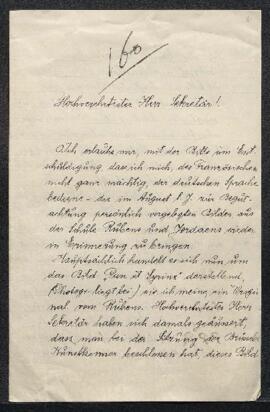 160
Hochverehrtester Herr Sekretär!
Ich erlaube mir, mit der Bitte um Ent-
schuldigung, dass ich mich, des Französischen
nicht ganz mächtig, der deutschen Sprache
bediene - die im August l. J. zur Begut-
achtung persönlich vorgelegten Bilder aus
der Schule Rubens und Jordaens wieder
in Erinnerung zu bringen.
Hauptsächlich handelt es sich nun um
das Bild „Pan et Syrinx" darstellend,
(Photogr. liegt bei) wie ich meine, ein Origi-
nal von Rubens. Hochverehrtester Herr
Sekretär haben sich damals geäussert,
dass man bei der
Kunstkenner beschlossen hat, dieses Bild